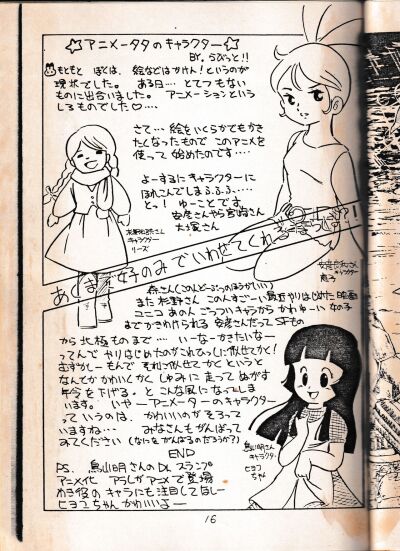 ☆アニメータタのキャラクター☆
BY. らびっと!!
もともと ぼくは、絵などはかけん!というのが
現状でした。 ある日‥‥ とてつもない
ものに出合いました。 アニメーションという
しろものでした♡‥‥
さて‥‥ 絵をいくらかでもかき
たくなったもので このアニメを
使って 始めたのです‥‥
よーするに キャラクターに
ほれこんでしまふふふ‥‥
とっ! ゆーことです。
安彦さんやら宮崎さん
大塚さん
キャラクター
リーズ
あくまで女子のみでいわせてくれ
安彦良和さん
キャラクター
恵子
森さん(このんどーぶつのほうがいい)
また 杉野さん このんすごーい最近やりはじめた映画
ユニコ あのん ごっついキャラから かわゆーい 女の子
までかきわけられる 安彦さんだって SFもの
から 北極ものまで‥‥ いーなーかきたいなー
ってんで やりはじめたの
むずかしーもんで それで
なんてか かわいくかく しゅみに 走って ぬがす
年令を下げる。 と こんな風になってしま
います。 いやー アニメーターのキャラクター
って いうのは、 かわいいが そろって
いますね‥‥ みなさんもがんばって
みてください (なにをがんばるのだろうか?)
END
PS. 鳥山明さんの Dr. スランプ
アニメ化 アラレがアニメで登場
わき役のキャラにも注目してほしー
ヒヨコちゃん かわいいよー
鳥山明さん
キャラクター
ヒヨコ
ちゃん
16